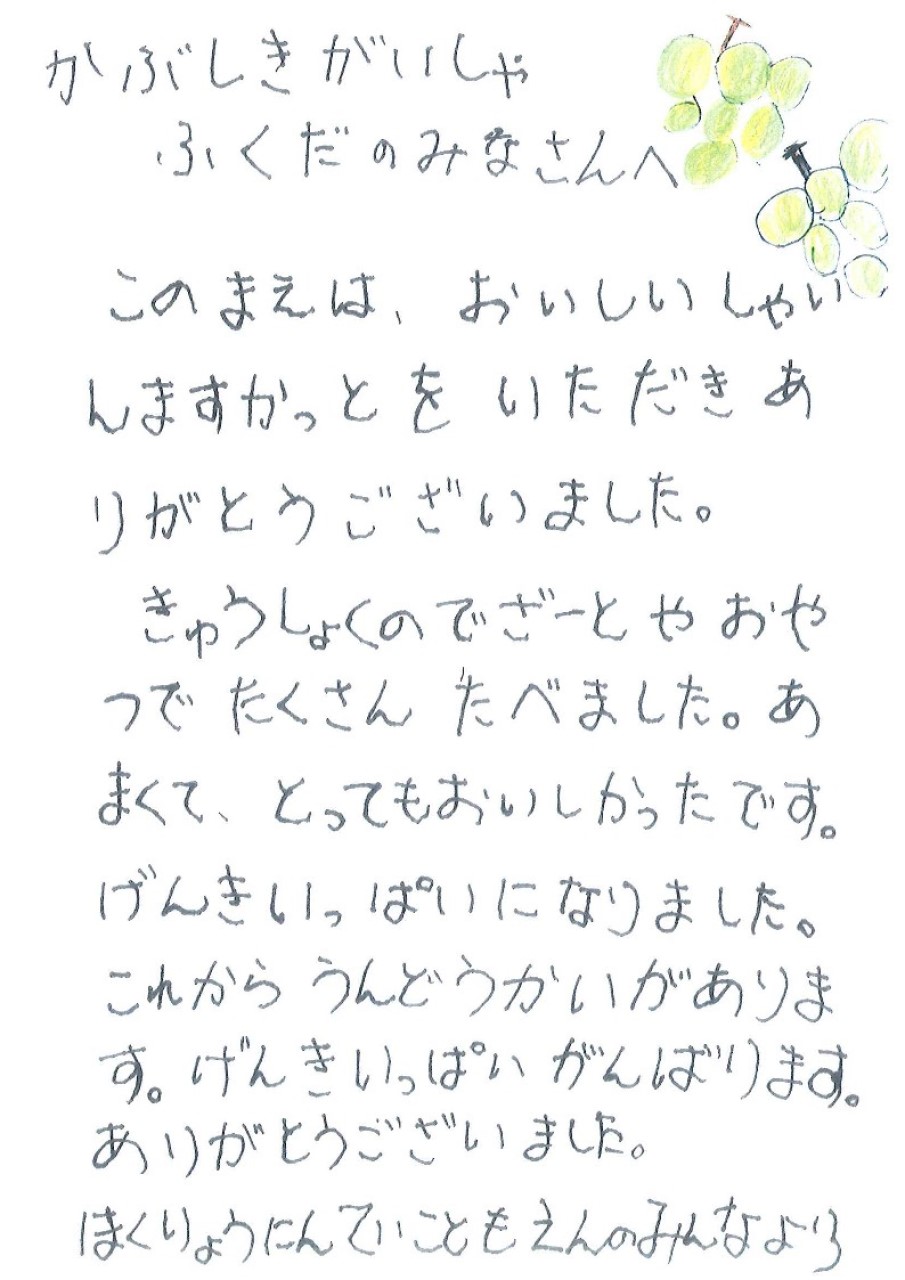 かぶしきがいしゃ
ふくだのみなさんへ
このまえは、おいしいしゃい
んますかっとをいただきあ
りがとうございました。
きゅうしょくのでざーとやおや
つでたくさんたべました。あ
まくて、とってもおいしかったです。
げんきいっぱいになりました。
これからうんどうかいがありま
す。げんきいっぱいがんばります。
ありがとうございました。
はくりょうにんていこどもえんのみんなより